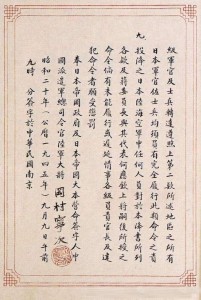 級軍官及士兵轉達遵照上第二款所述地區之所有
日本軍官佐士兵均須負有完全履行此類命令之責
九、投降之日本陸海空軍中任何人員對於本降書所列
各款及蔣委員長與其代表何應欽上將嗣後所授之
命令倘有未能履行或遲延情事各級負責官長及違
犯命令者願受懲罰
奉日本帝國政府及日本帝國大本營命簽字人中
國派遣軍總司令官陸軍大將 岡村寧次
昭和二十年（公曆一九四五年）九月九日午前
九時 分簽字於中華民國南京